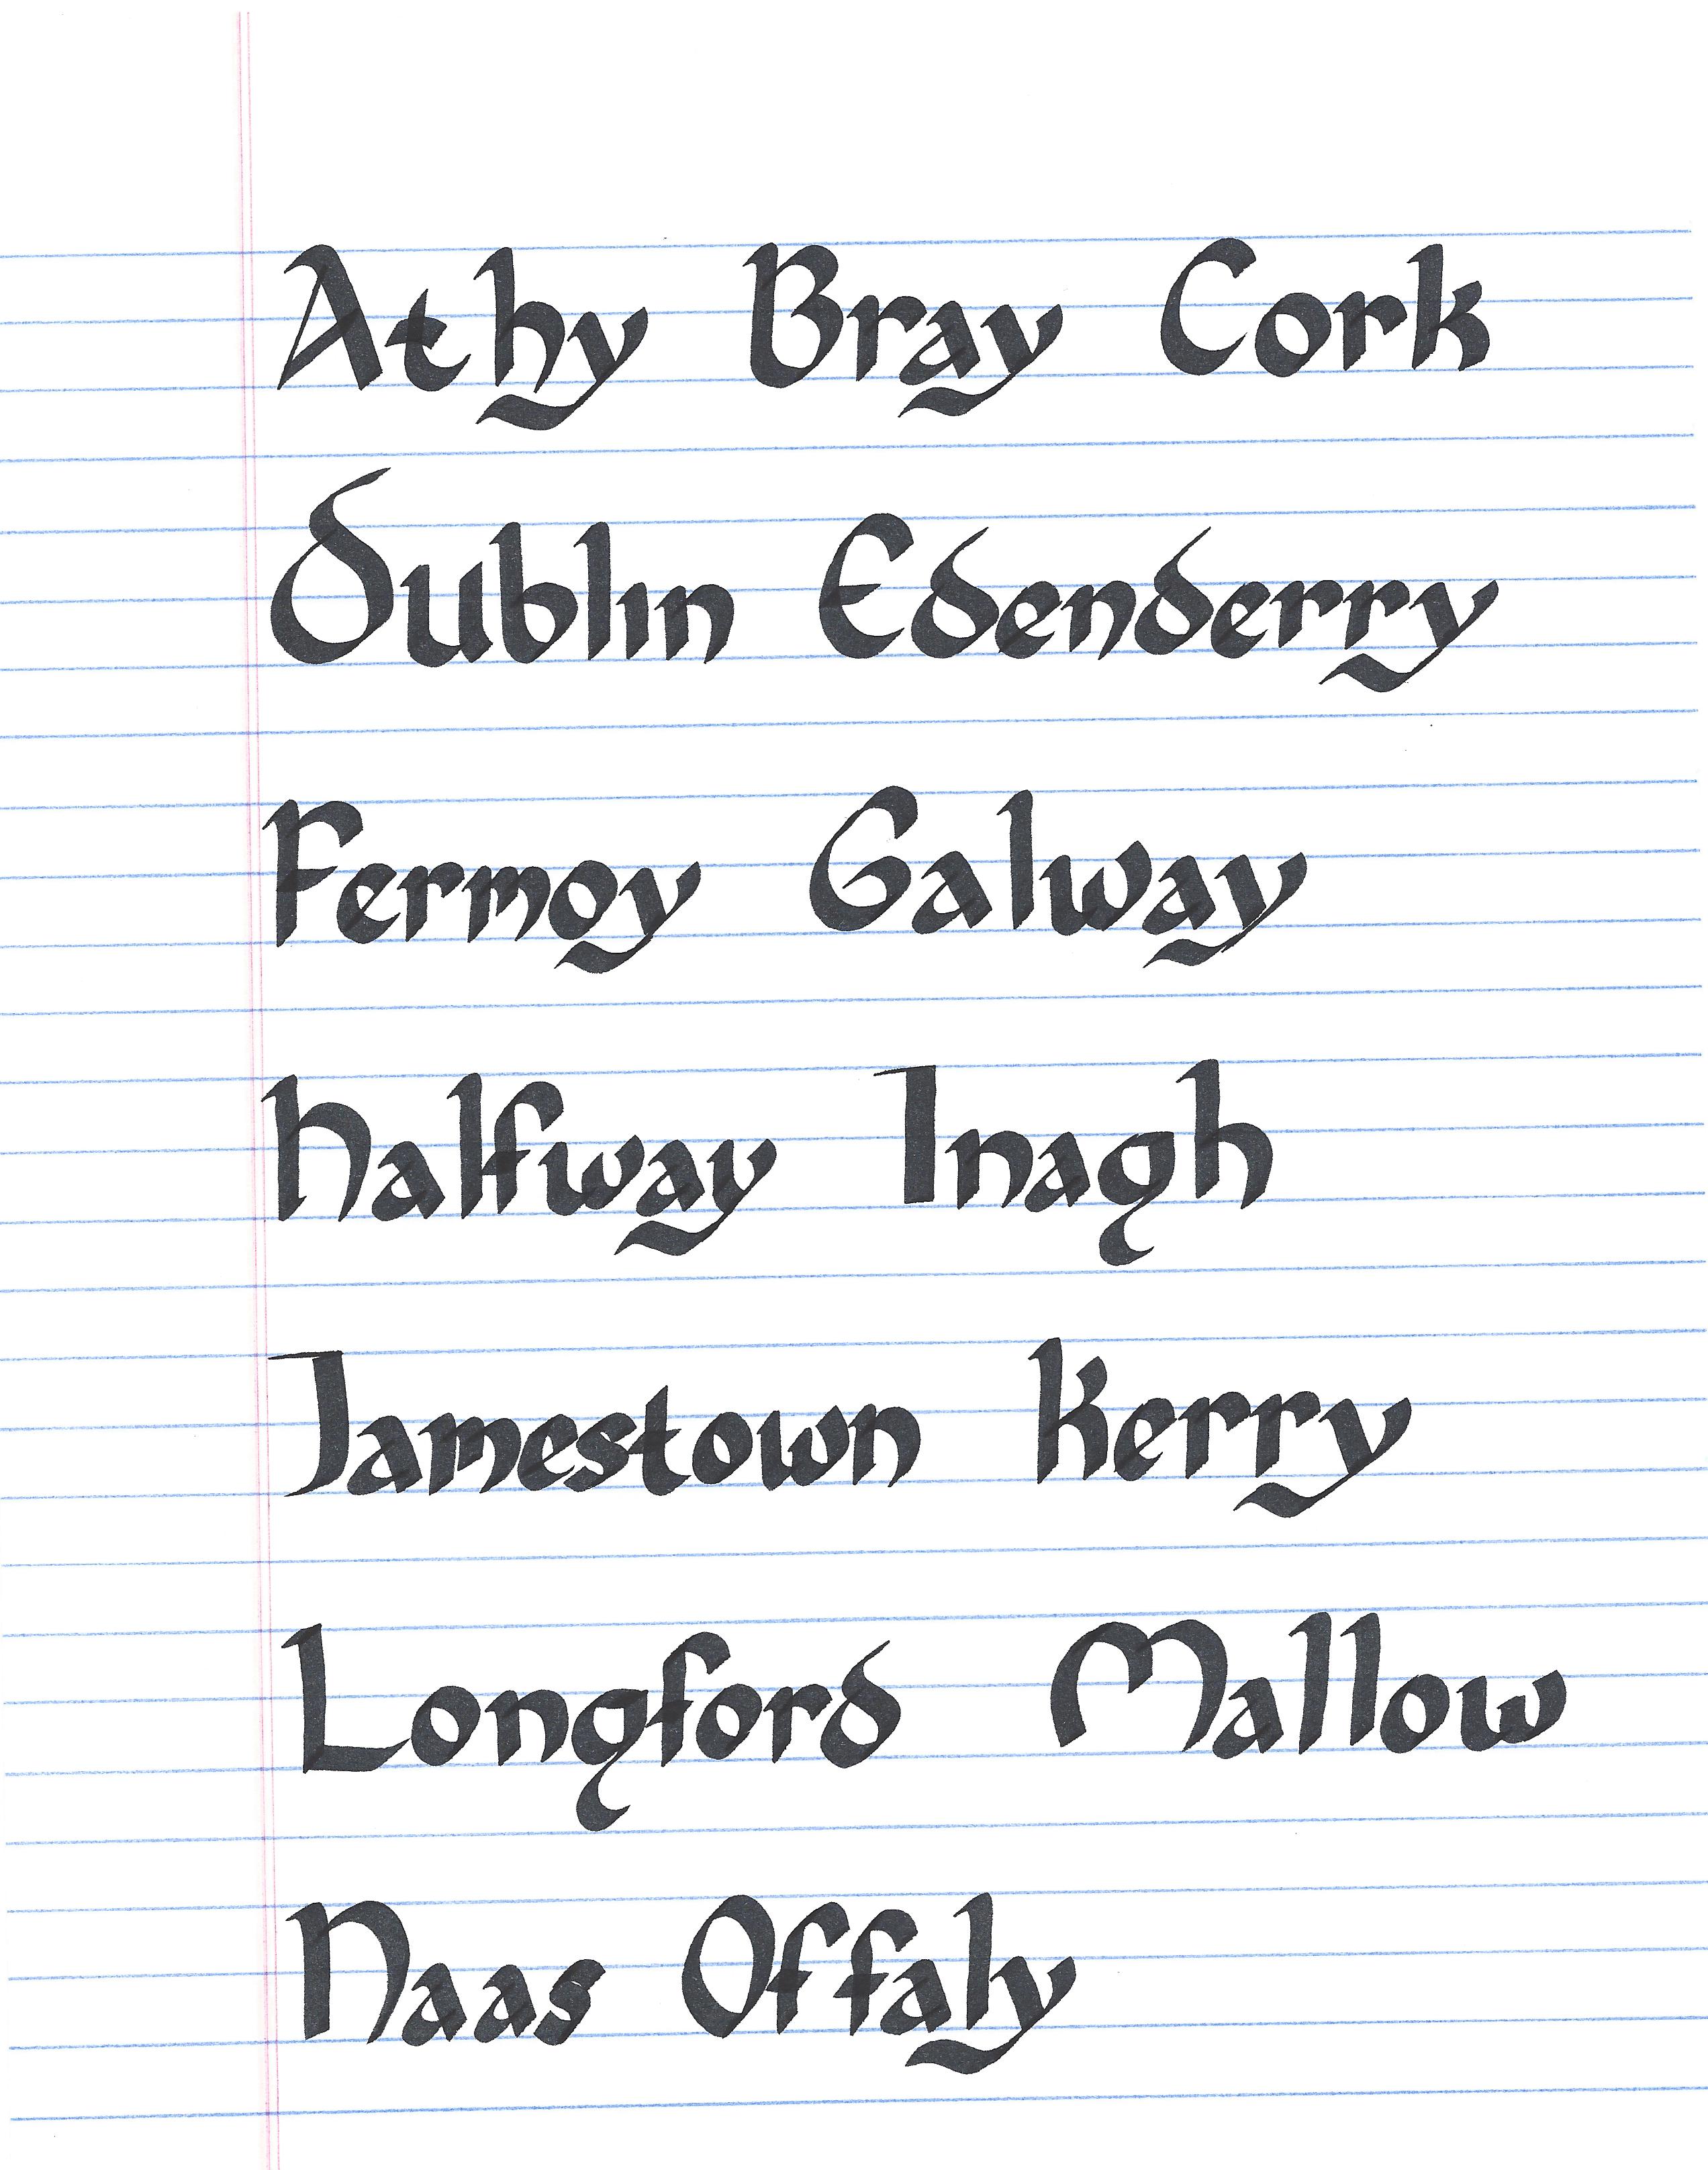 Athy Bray Cork
Dublin Edenderry
Fermoy Galway
Halfway Inagh
Jamestown Kerry
Longford Mallow
Naas Offaly